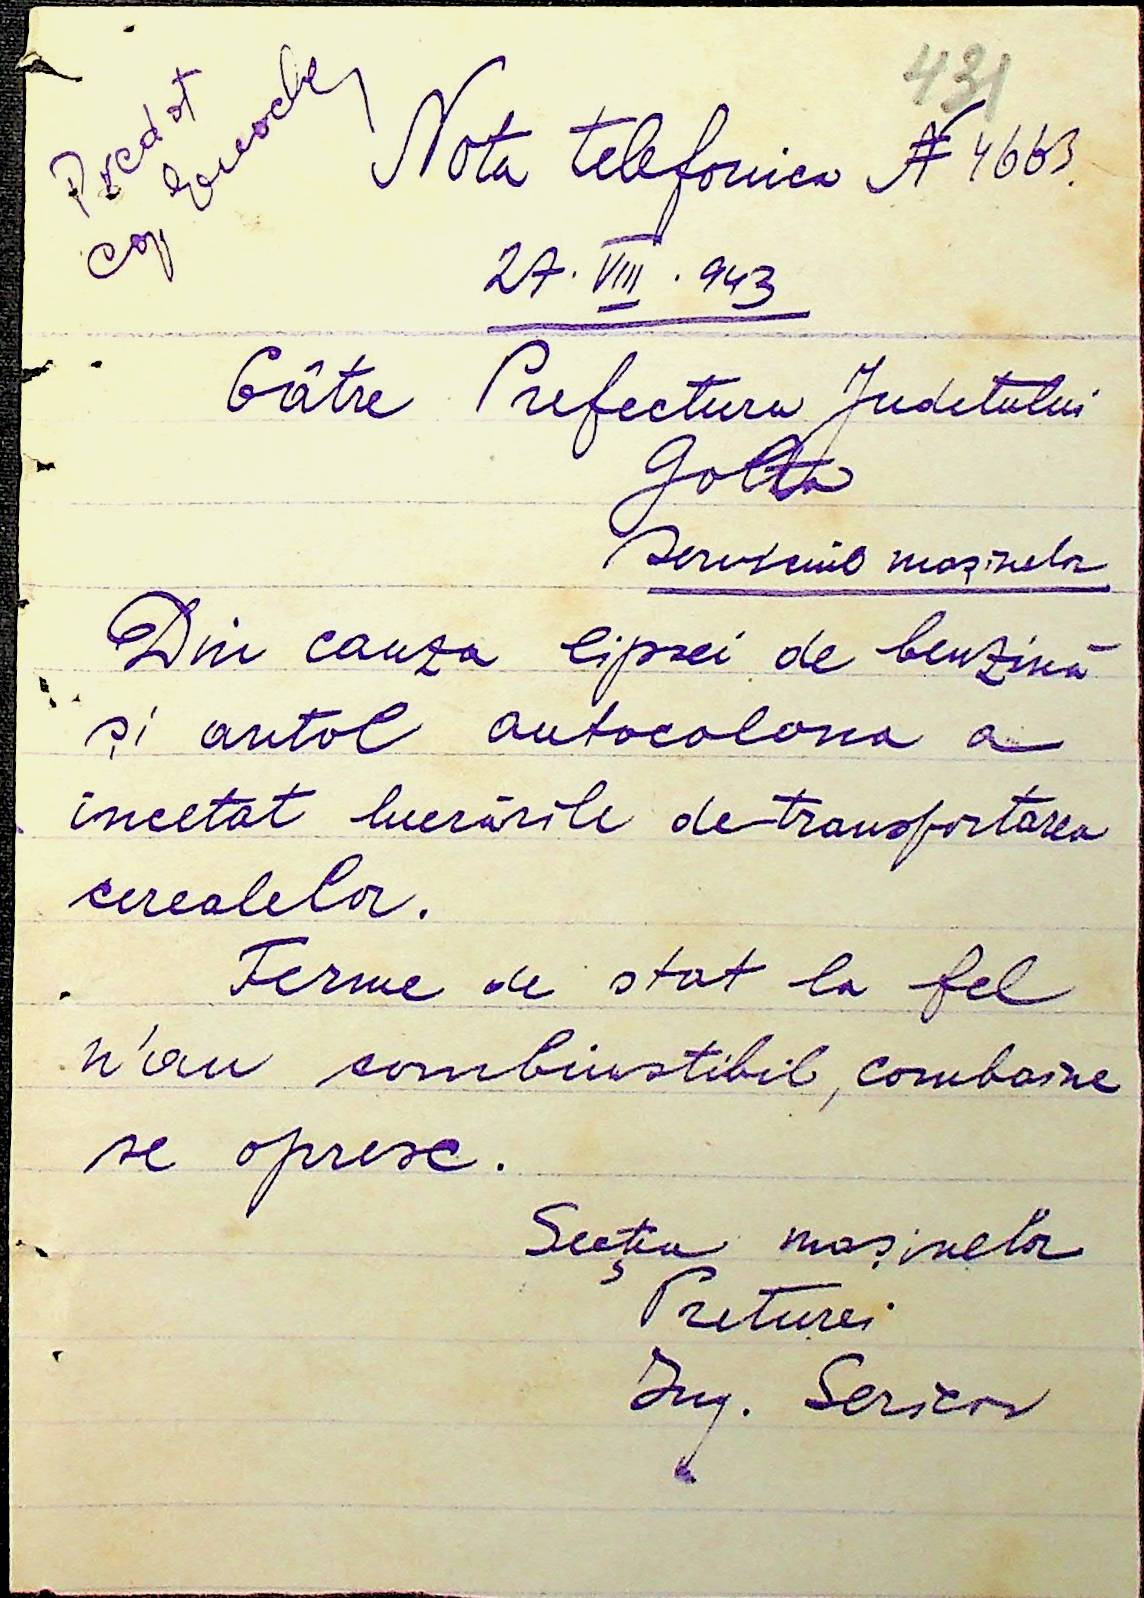 431
Predat
cap
Nota telefonica № 4663.
27. VIII. 943
Câtre Prefectura Judetului
Golta
Serviciul maşinelor
Din cauza lipsei de benzină
şi autol autocolona a
incetat lucrările de transportarea
cerealelor.
Ferme de stat la fel
n'au combiustibil, combaine
se opresc.
Secţia maşinelor
Preturei
Ing. Sericov